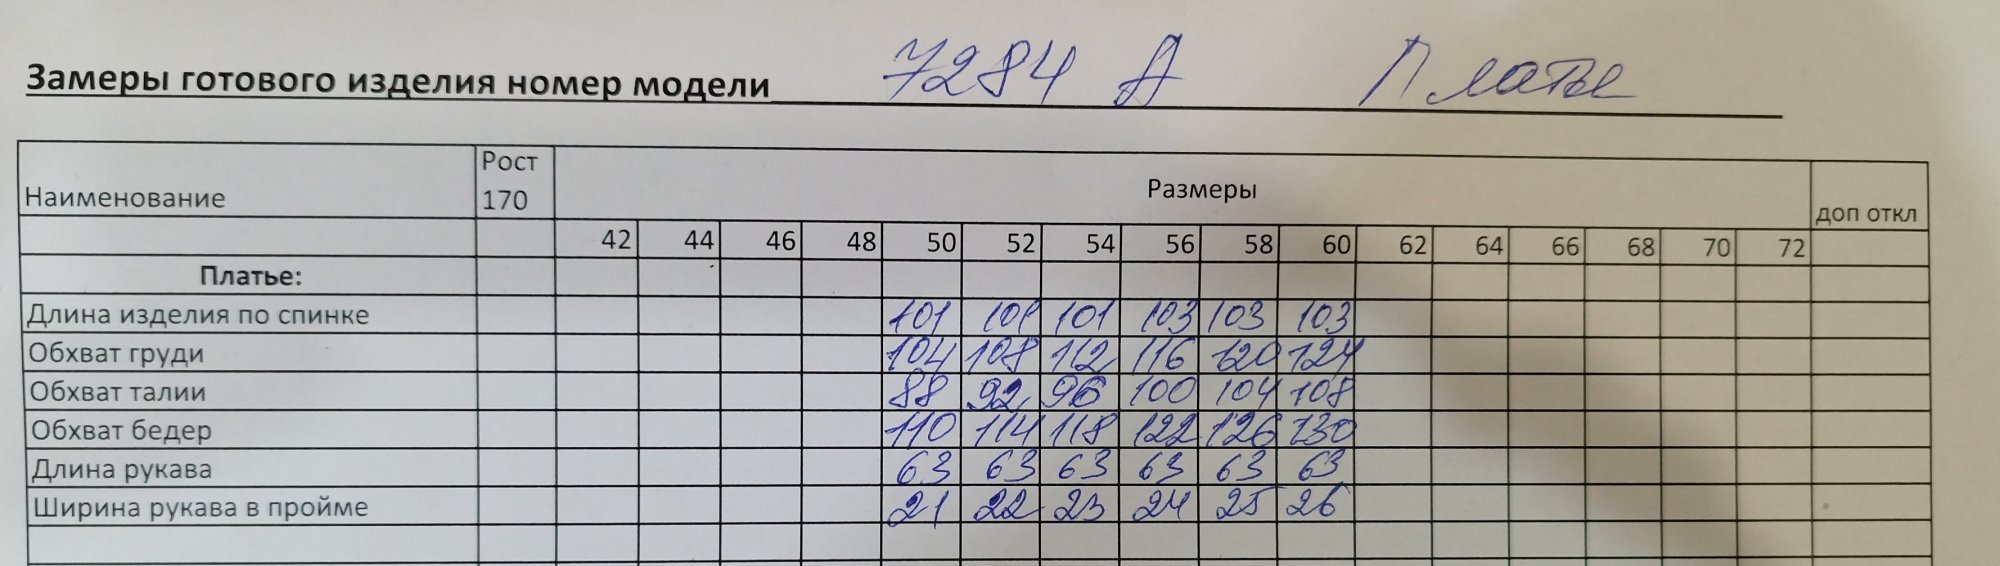 Замеры готового изделия номер модели 7284 А Платье
Наименование Рост 170 Размеры доп откл
42 44 46 48 50 52 54 56 58 60 62 64 66 68 70 72
Платье:
Длина изделия по спинке 101 101 101 103 103 103
Обхват груди 104 108 112 116 120 124
Обхват талии 88 92 96 100 104 108
Обхват бедер 110 114 118 122 126 130
Длина рукава 63 63 63 63 63 63
Ширина рукава в пройме 21 22 23 24 25 26